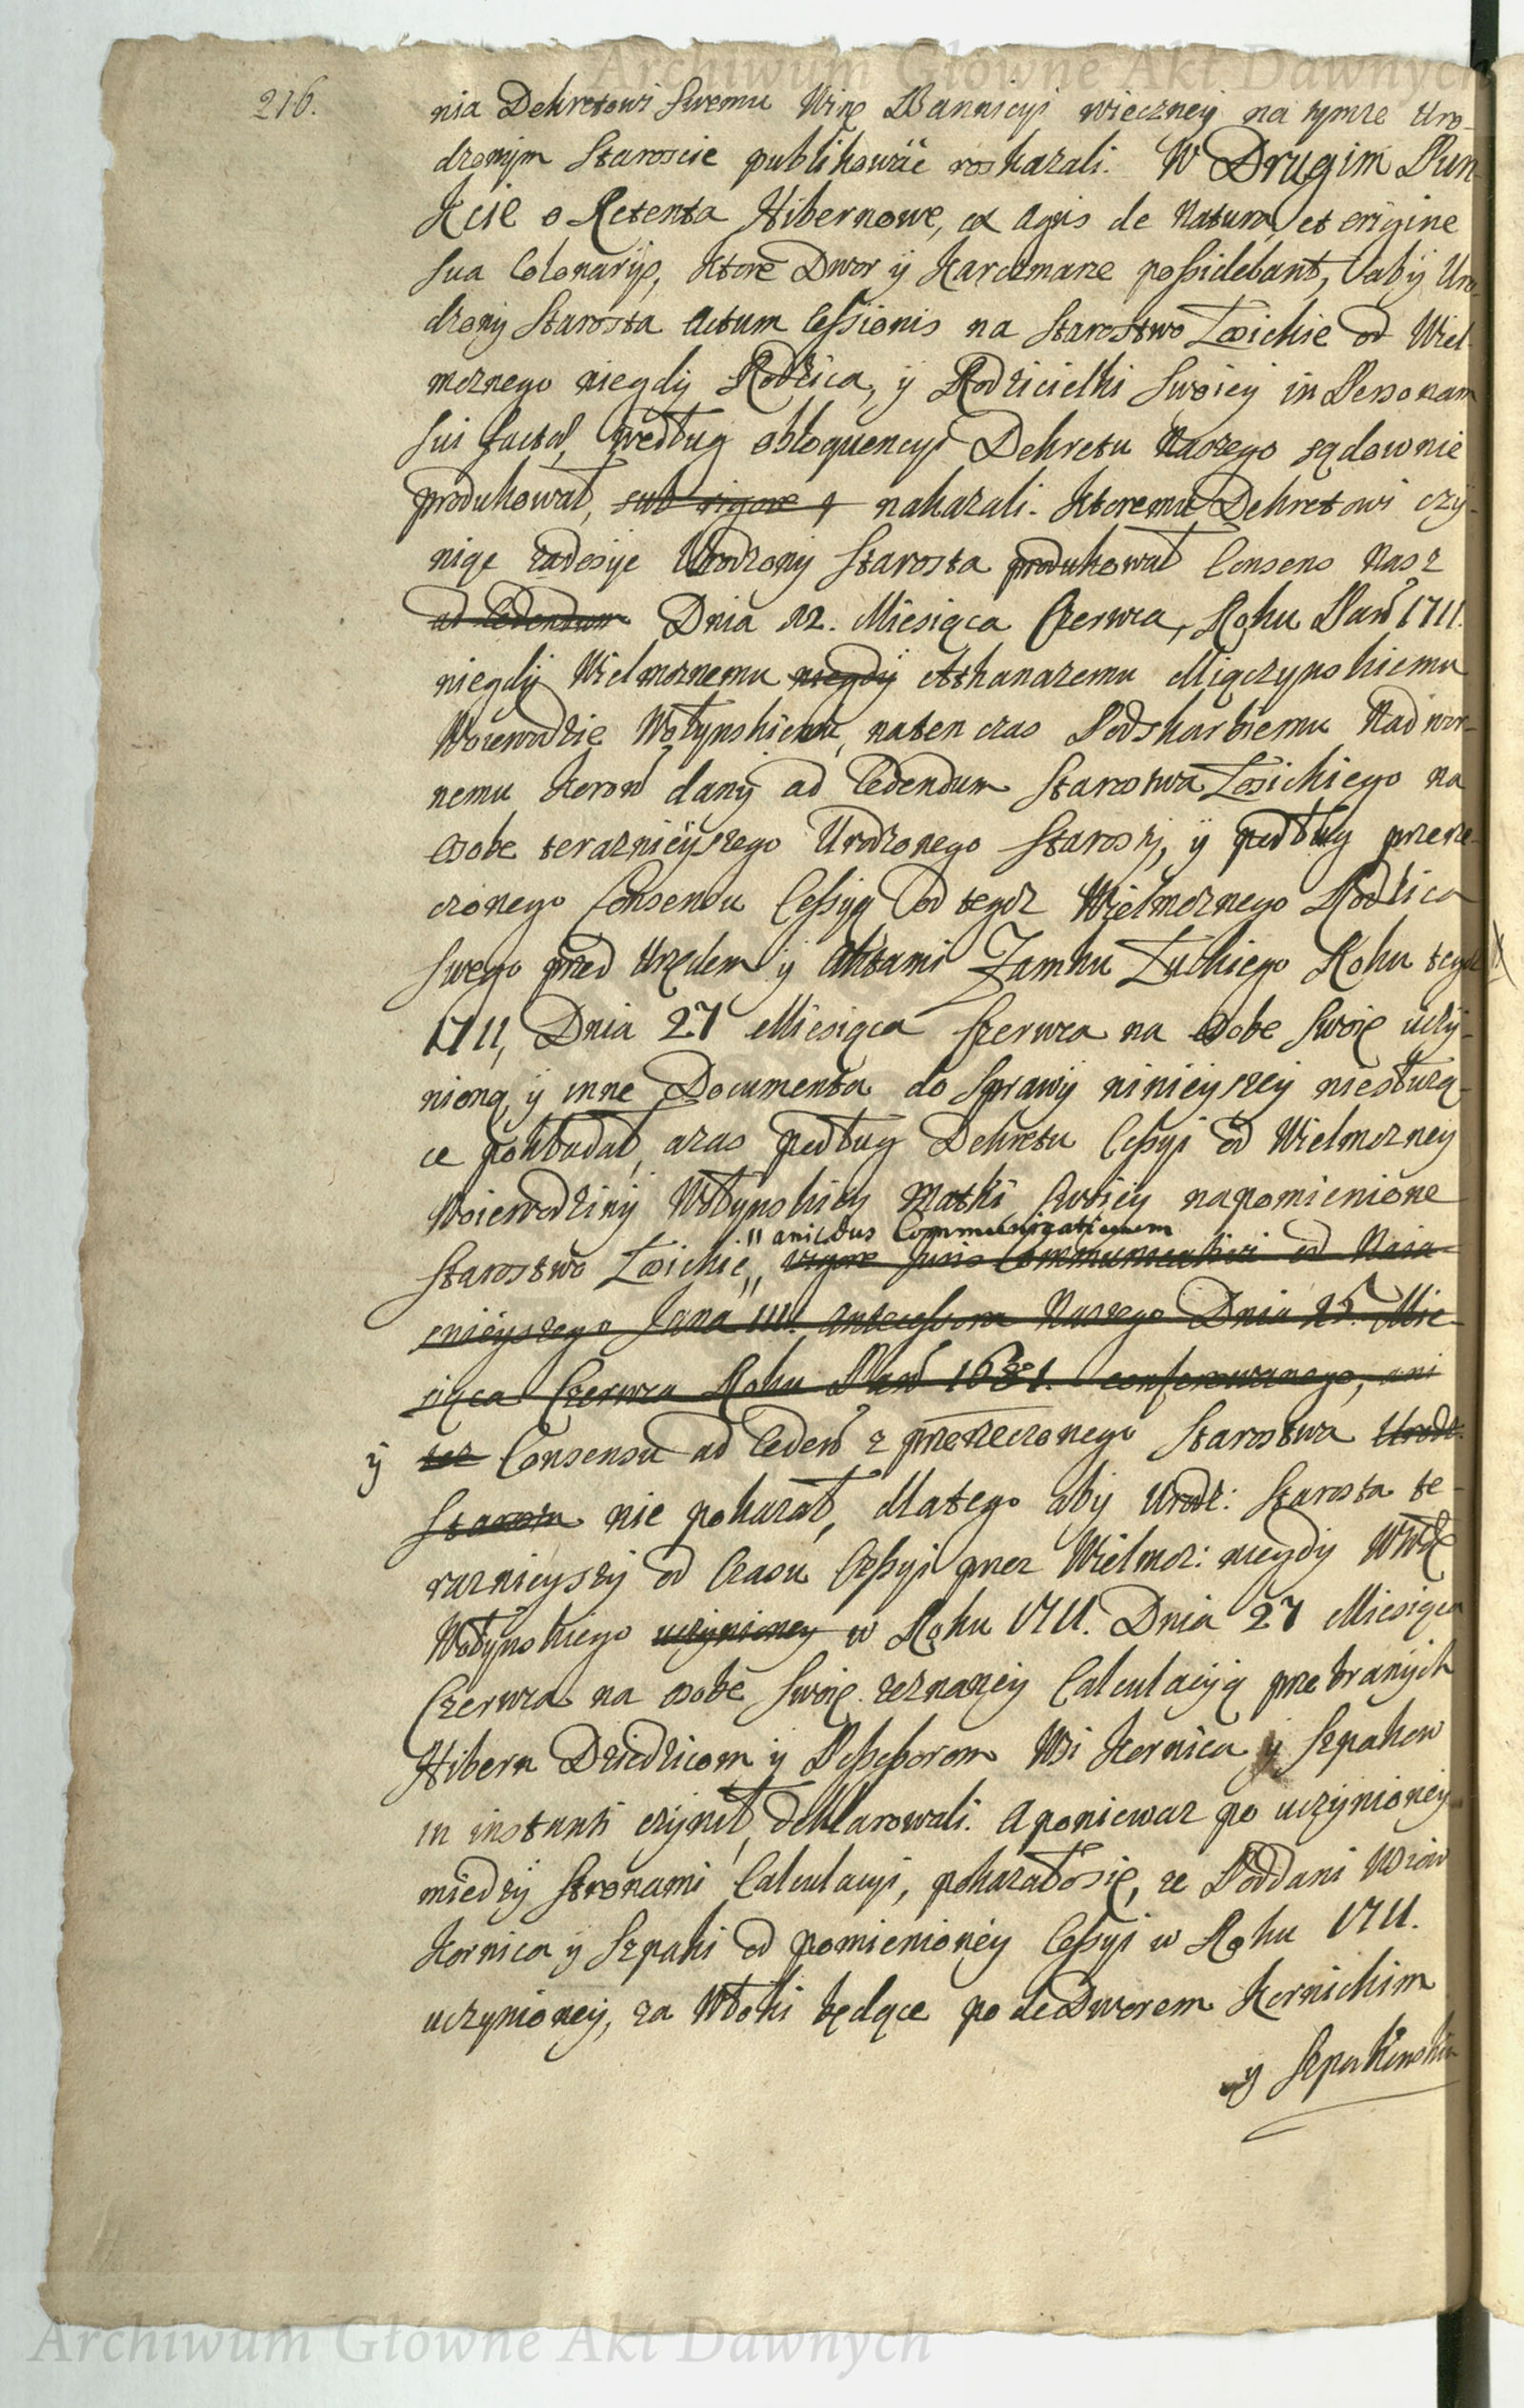 Archiwum Główne Akt Dawnych
216.
nia Dekretowi swemu Winę Bannicyi wieczney na tymze Uro-
dzonym Staroscie publikowac roskazali. W Drugim Pun-
kcie o Retenta Hibernowe, ex Agris de Natura et origine
sua Colonarijs, ktore Dwor y Karczmarze possidebant, aby Uro-
dzony Starosta Actum Cessionis na Starostwo Łosickie od Wiel-
moznego niegdy Rodzica, y Rodzicielki Swoiey in Personam
sui factą, według obloquencyi Dekretu Naszego sądownie
produkował, sub rigore nakazali. Ktoremu Dekretowi czy-
niąc zadosyc Urodzony Starosta produkował Consens Nasz
ad Cedendum Dnia 12. Miesiąca Czerwca, Roku Pań 1711.
niegdy Wielmoznemu niegdy Athanazemu Miączynskiemu
Woiewodzie Wołynskiemu, naten czas Podskarbiemu Nadwor-
nemu Koron dany ad Cedendum Starostwa Łosickiego na
osobe teraznieyszego Urodzonego Starosty, y podług przere-
czonego Consensu Cessyą od tegoz Wielmoznego Rodzica
swego przed Urzędem y Aktami Zamku Łuckiego Roku tegoz
1711, Dnia 27 Miesiąca Czerwca na osobe swoię uczy-
nioną, y inne Documenta do sprawy ninieyszey niesłuzą-
ce pokładał, azas podług Dekretu Cessyi od Wielmozney
Woiewodziny Wołynskiey Matki swoiey na pomienione
" ani Ius Communicativum
Starostwo Łosickie, " vigore Juris Communicativi od Naia-
snieyszego Jana III. Antecessora Naszego Dnia 25. Mie-
siąca Czerwca Roku Pań 1681. conferowanego, ani
y tez Consensu ad Ceden z przereczonego Starostwa Urodz.
Starosta nie pokazał, dlatego aby Urodz: Starosta te-
raznieyszy od Czasu Cessyi przez Wielmoz: niegdy Wwdę
Wołynskiego uczynioney w Roku 1711. Dnia 27 Miesiąca
Czerwca na osobe swoię zeznaney Calculacyią przebranych
Hibern Dziedzicom y Possessorom Wsi Kornica y Szpakow
in instanti czynił, deklarowali. A poniewaz po uczynioney
miedzy stronami Calculacyi, pokazałosię, ze Poddani Wsiow
Kornica y Szpaki od pomienioney Cessyi w Roku 1711.
uczynioney, za Włoki będące pod Dworem Kornickim
y Szpakowskim
Archiwum Główne Akt Dawnych